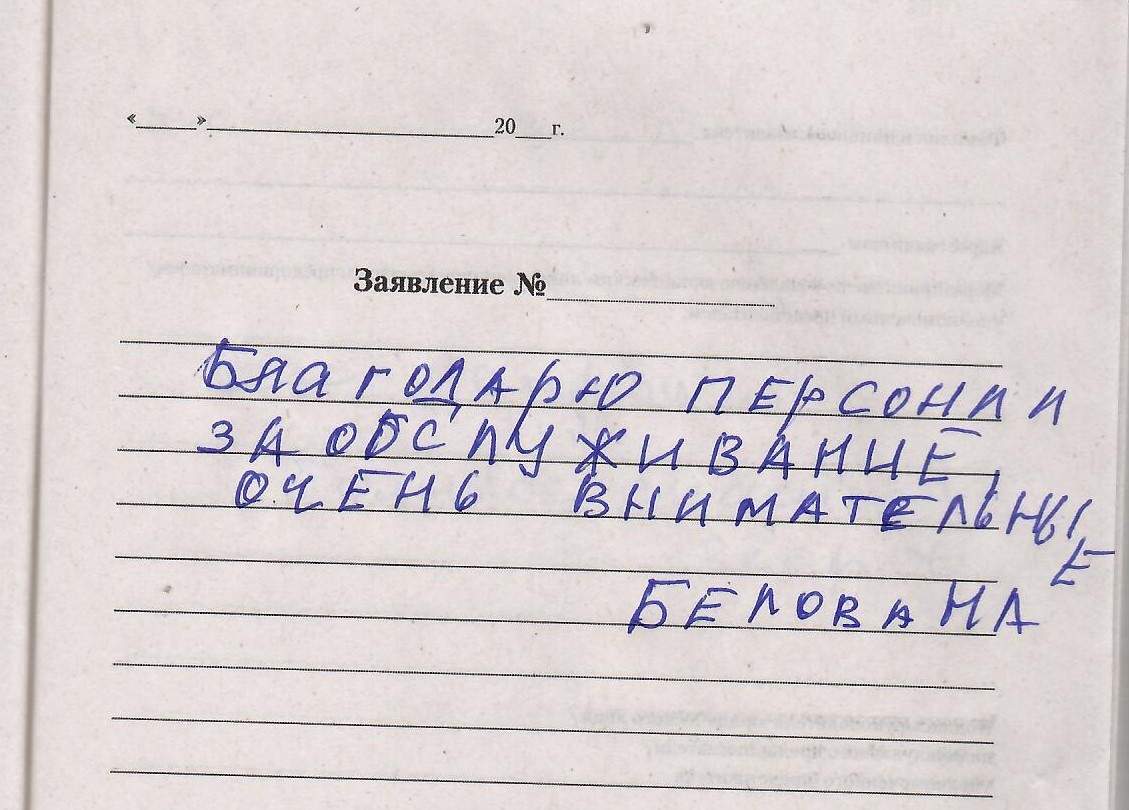 «____»__________________20___г.
Заявление №________________
БЛАГОДАРЮ ПЕРСОНАЛ
ЗА ОБСЛУЖИВАНИЕ,
ОЧЕНЬ ВНИМАТЕЛЬНЫ
Е
БЕЛОВА НА